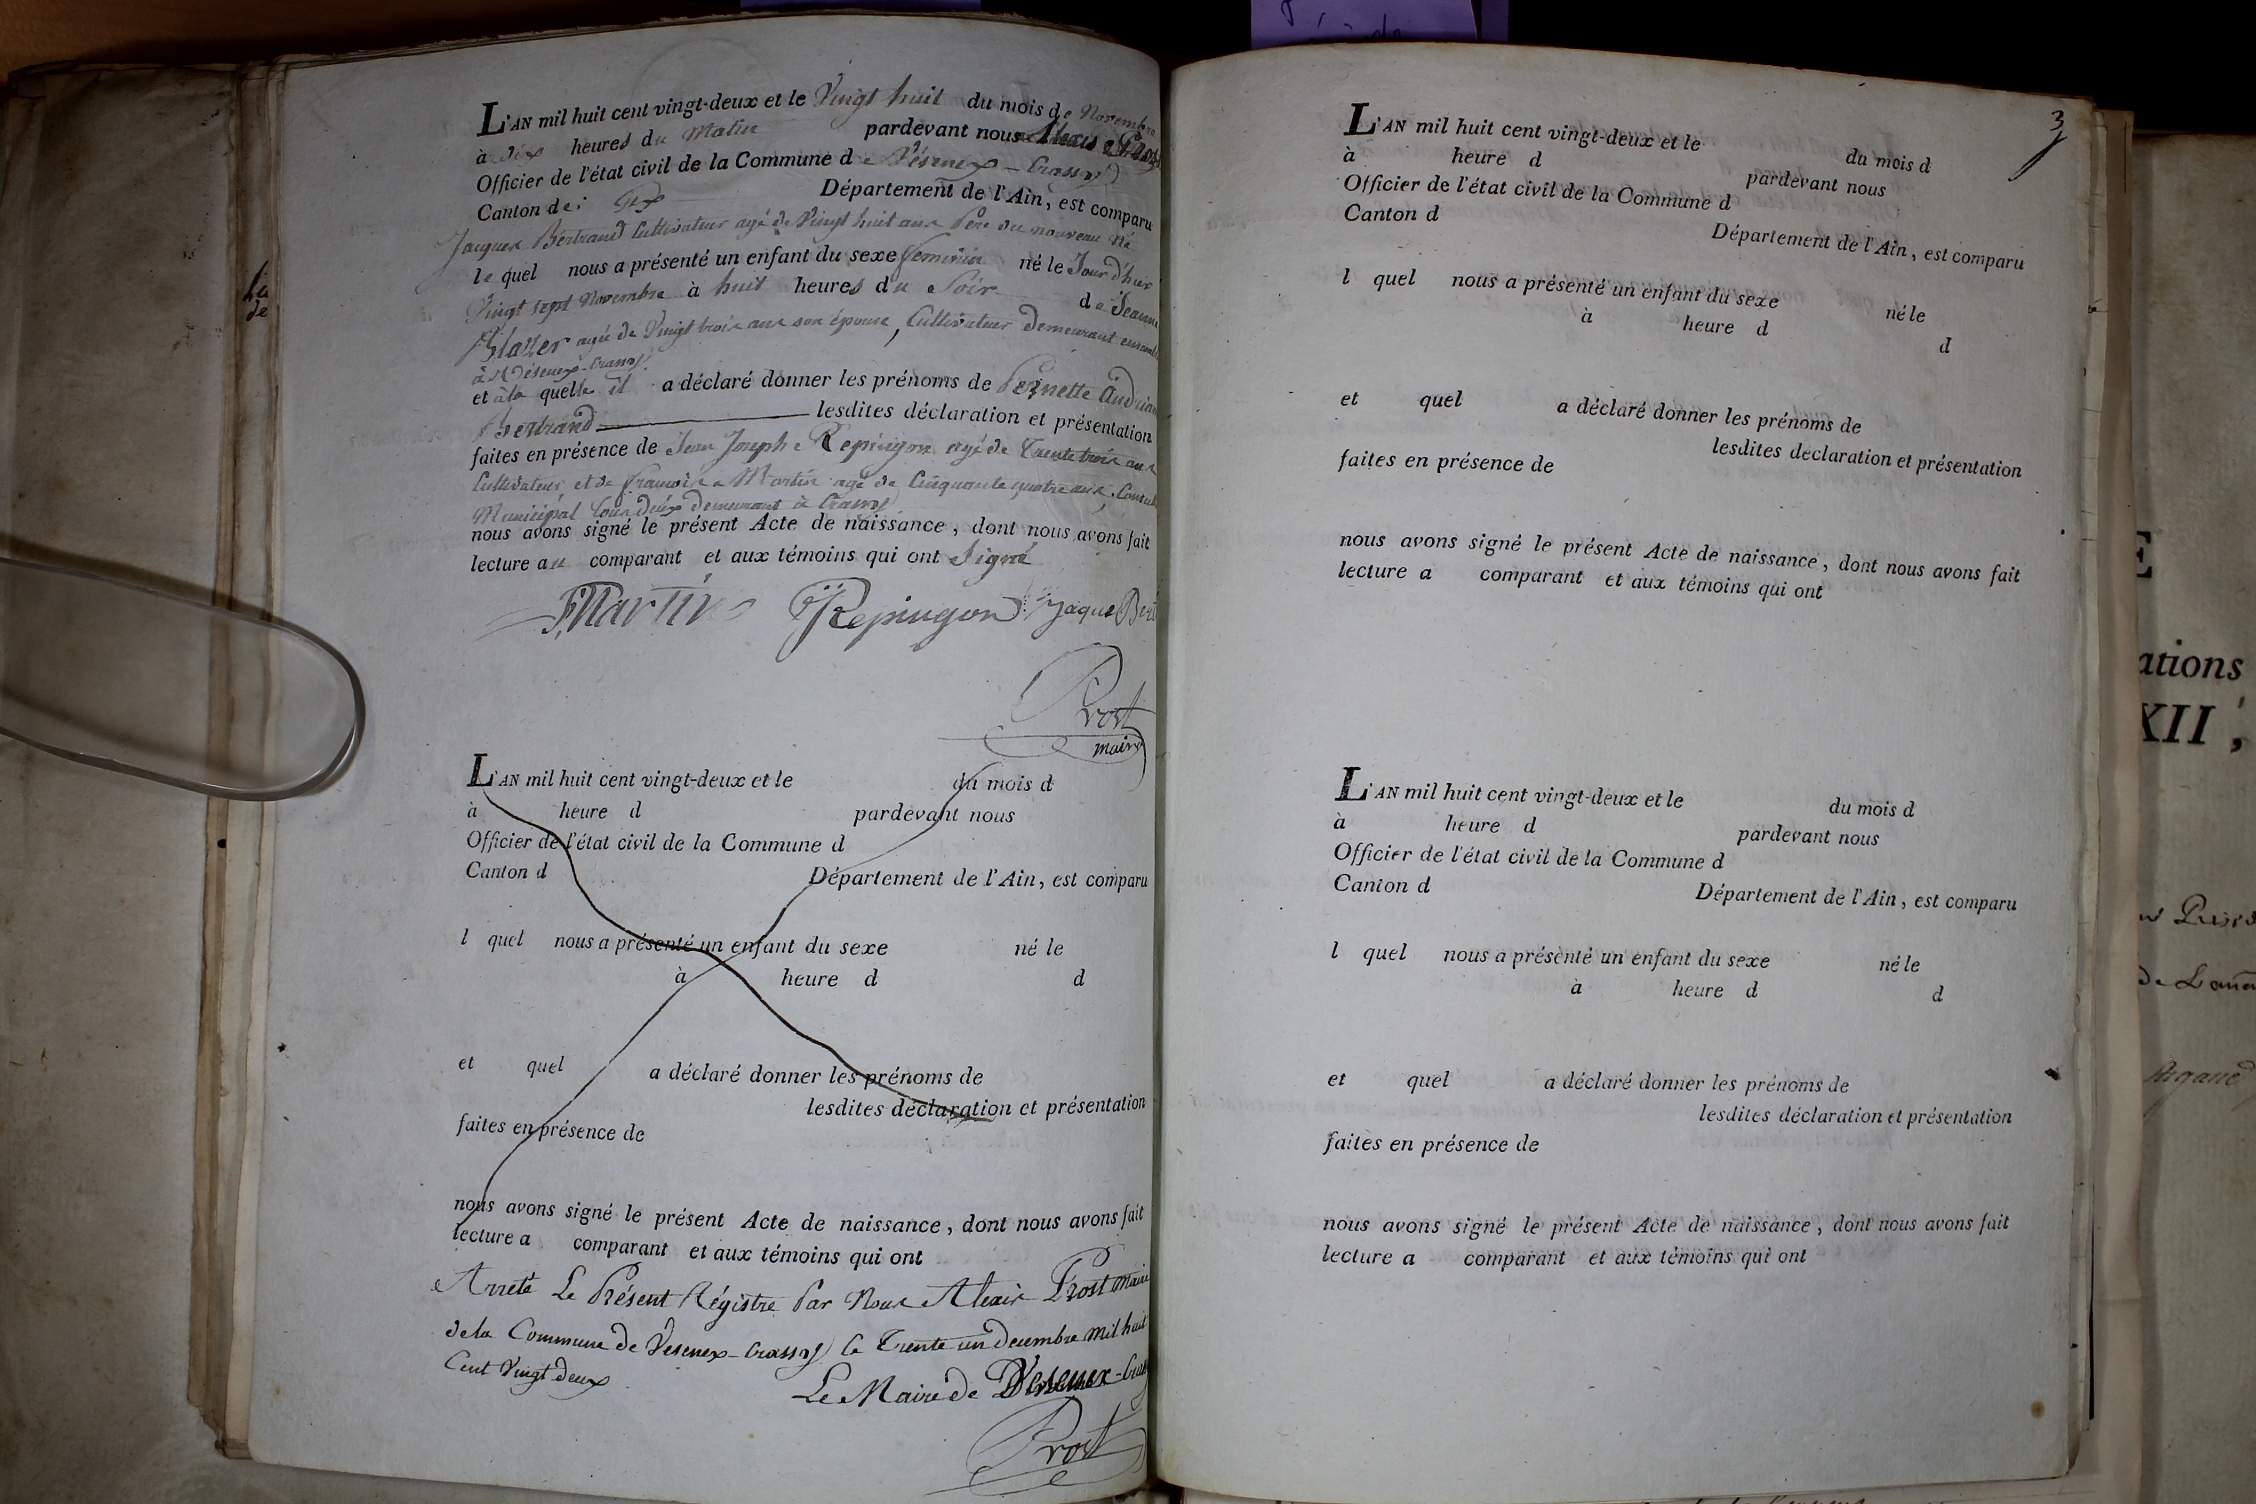 L'AN mil huit cent vingt-deux et le Vingt huit du mois de Novembre
à dix heures du Matin pardevant nous Alexis Prost
Officier de l'état civil de la Commune de Vésenex-Crassy
Canton de Gex Département de l'Ain, est comparu
Jacques Bertrand Cultivateur agé de Vingt huit ans Père du nouveau né
lequel nous a présenté un enfant du sexe feminin né le Jour d'hier
Vingt sept Novembre à huit heures du Soir de Jeanne
agée de Vingt trois ans son épouse, Cultivateur Demeurant ensemble
à Vésenex-Crassy
et à la quelle il a déclaré donner les prénoms de Pernette
Bertrand lesdites déclaration et présentation
faites en présence de Jean Joseph Repingon agé de Trente trois ans
Cultivateur et de François Martin agé de Cinquante quatre ans,
Municipal tous deux demeurant à Crassy
nous avons signé le présent Acte de naissance, dont nous avons fait
lecture au comparant et aux témoins qui ont Signé
Martin Repingon Jaque Bert
Prost
maire
L'AN mil huit cent vingt-deux et le du mois d
à heure d pardevant nous
Officier de l'état civil de la Commune d
Canton d Département de l'Ain, est comparu
l quel nous a présenté un enfant du sexe né le
à heure d d
et quel a déclaré donner les prénoms de
lesdites déclaration et présentation
faites en présence de
nous avons signé le présent Acte de naissance, dont nous avons fait
lecture a comparant et aux témoins qui ont
Arreté Le Présent Régistre Par Nous Alexis Prost Maire
de la Commune de Vesenex-Crassy le Trente un Decembre Mil huit
Cent Vingt deux
Le Maire de Vesenex-Crassy
Prost
3
L'AN mil huit cent vingt-deux et le du mois d
à heure d pardevant nous
Officier de l'état civil de la Commune d
Canton d Département de l'Ain, est comparu
l quel nous a présenté un enfant du sexe né le
à heure d d
et quel a déclaré donner les prénoms de
lesdites déclaration et présentation
faites en présence de
nous avons signé le présent Acte de naissance, dont nous avons fait
lecture a comparant et aux témoins qui ont
L'AN mil huit cent vingt-deux et le du mois d
à heure d pardevant nous
Officier de l'état civil de la Commune d
Canton d Département de l'Ain, est comparu
l quel nous a présenté un enfant du sexe né le
à heure d d
et quel a déclaré donner les prénoms de
lesdites déclaration et présentation
faites en présence de
nous avons signé le présent Acte de naissance, dont nous avons fait
lecture a comparant et aux témoins qui ont
E
ations
XII ;